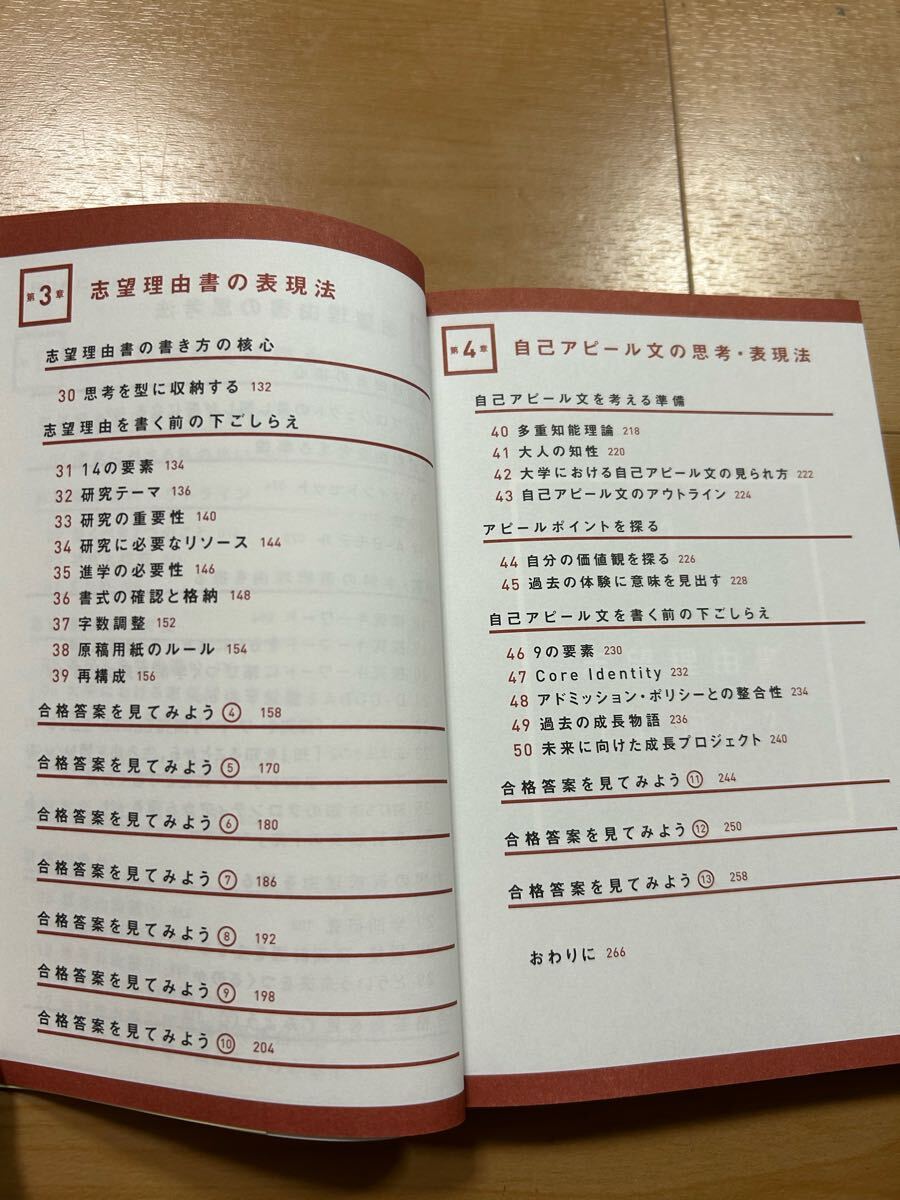 第3章 志望理由書の表現法
志望理由書の書き方の核心
30 思考を型に収納する 132
志望理由を書く前の下ごしらえ
31 14の要素 134
32 研究テーマ 136
33 研究の重要性 140
34 研究に必要なリソース 144
35 進学の必要性 146
36 書式の確認と格納 148
37 字数調整 152
38 原稿用紙のルール 154
39 再構成 156
合格答案を見てみよう④ 158
合格答案を見てみよう⑤ 170
合格答案を見てみよう⑥ 180
合格答案を見てみよう⑦ 186
合格答案を見てみよう⑧ 192
合格答案を見てみよう⑨ 198
合格答案を見てみよう⑩ 204
第4章 自己アピール文の思考・表現法
自己アピール文を考える準備
40 多重知能理論 218
41 大人の知性 220
42 大学における自己アピール文の見られ方 222
43 自己アピール文のアウトライン 224
アピールポイントを探る
44 自分の価値観を探る 226
45 過去の体験に意味を見出す 228
自己アピール文を書く前の下ごしらえ
46 9の要素 230
47 Core Identity 232
48 アドミッション・ポリシーとの整合性 234
49 過去の成長物語 236
50 未来に向けた成長プロジェクト 240
合格答案を見てみよう⑪ 244
合格答案を見てみよう⑫ 250
合格答案を見てみよう⑬ 258
おわりに 266